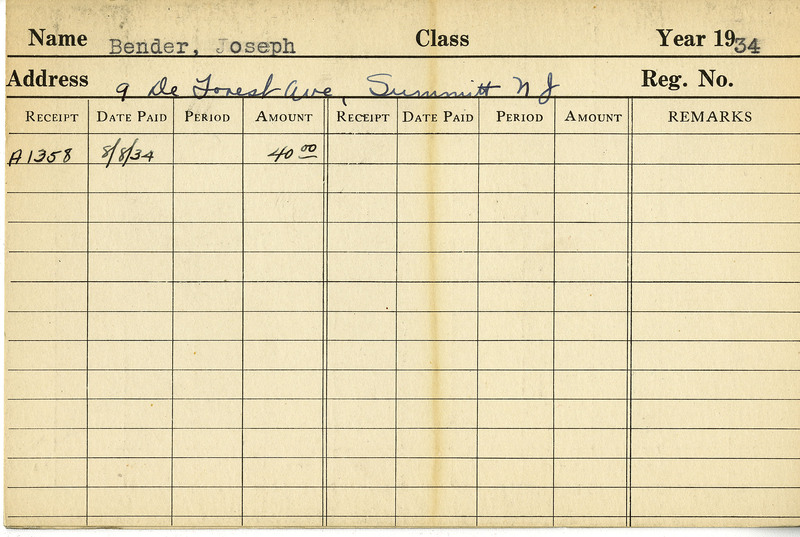 Name Bender, Joseph Class Year 1934
Address 9 De Forest Ave, Summitt N J Reg. No.
RECEIPT DATE PAID PERIOD AMOUNT RECEIPT DATE PAID PERIOD AMOUNT REMARKS
A1358 8/8/34 40 00